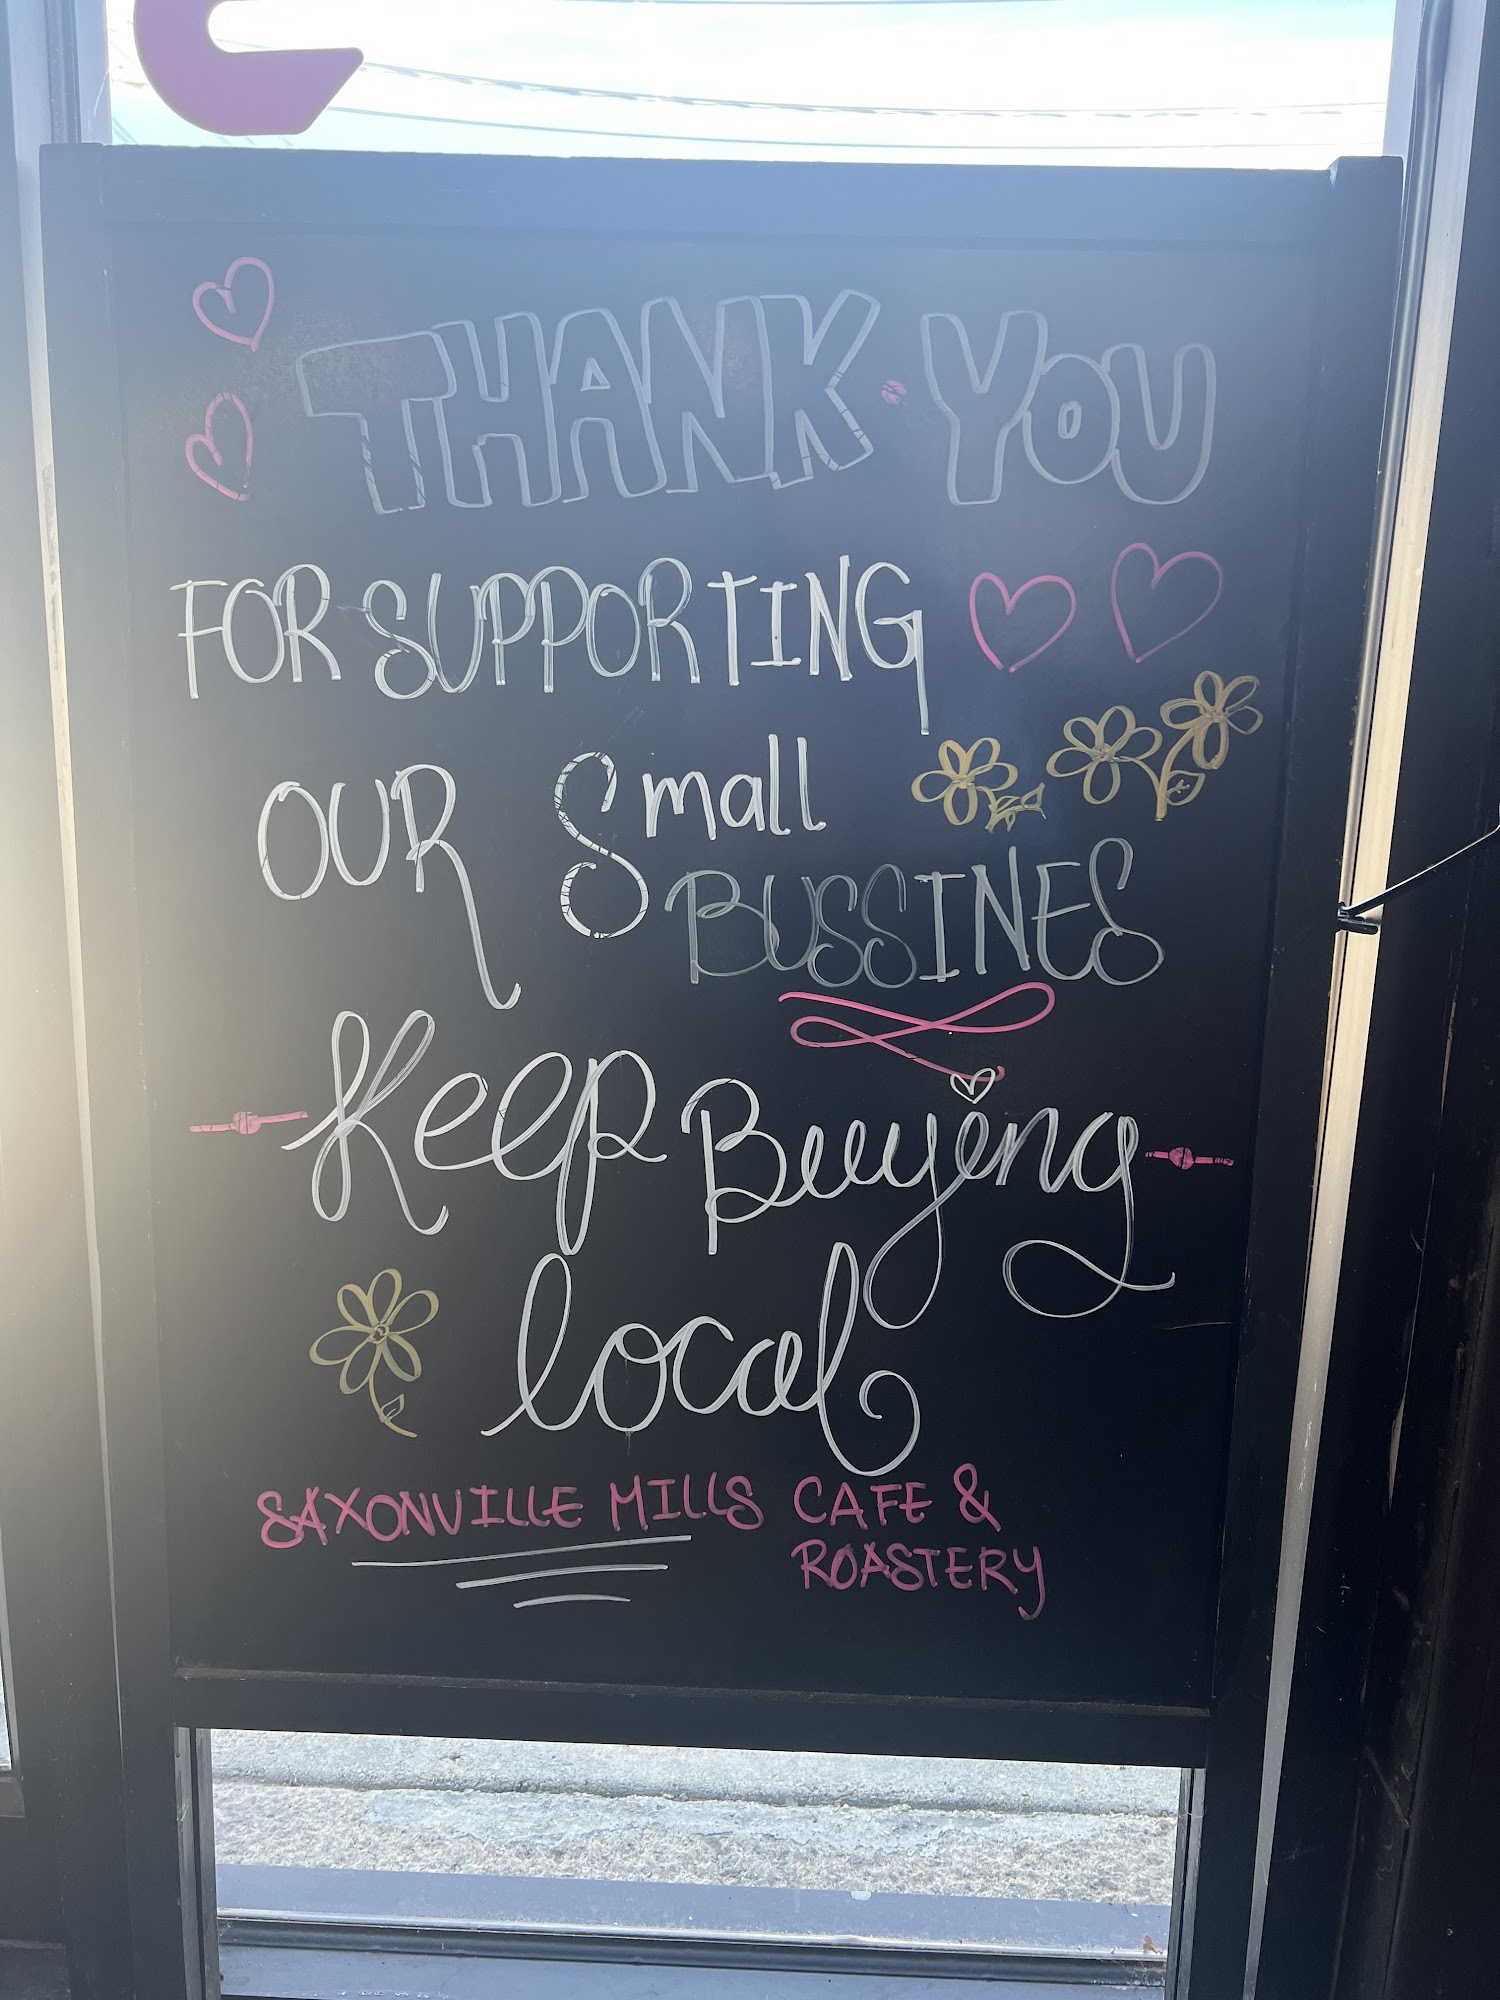 THANK YOU
FOR SUPPORTING
OUR Small
BUSSINES
Keep Buying
local
SAXONVILLE MILLS CAFE &
ROASTERY